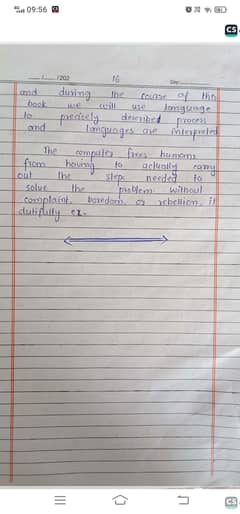 09:56
CS
/202
16
and during the course of this
book we will use language
to precisely described process
and languages are interpreted
The computer frees humans
from having to actually carry
out the steps needed to
solve the problem without
complaint, boredom, or rebellion, it
dutifully ex.
CS